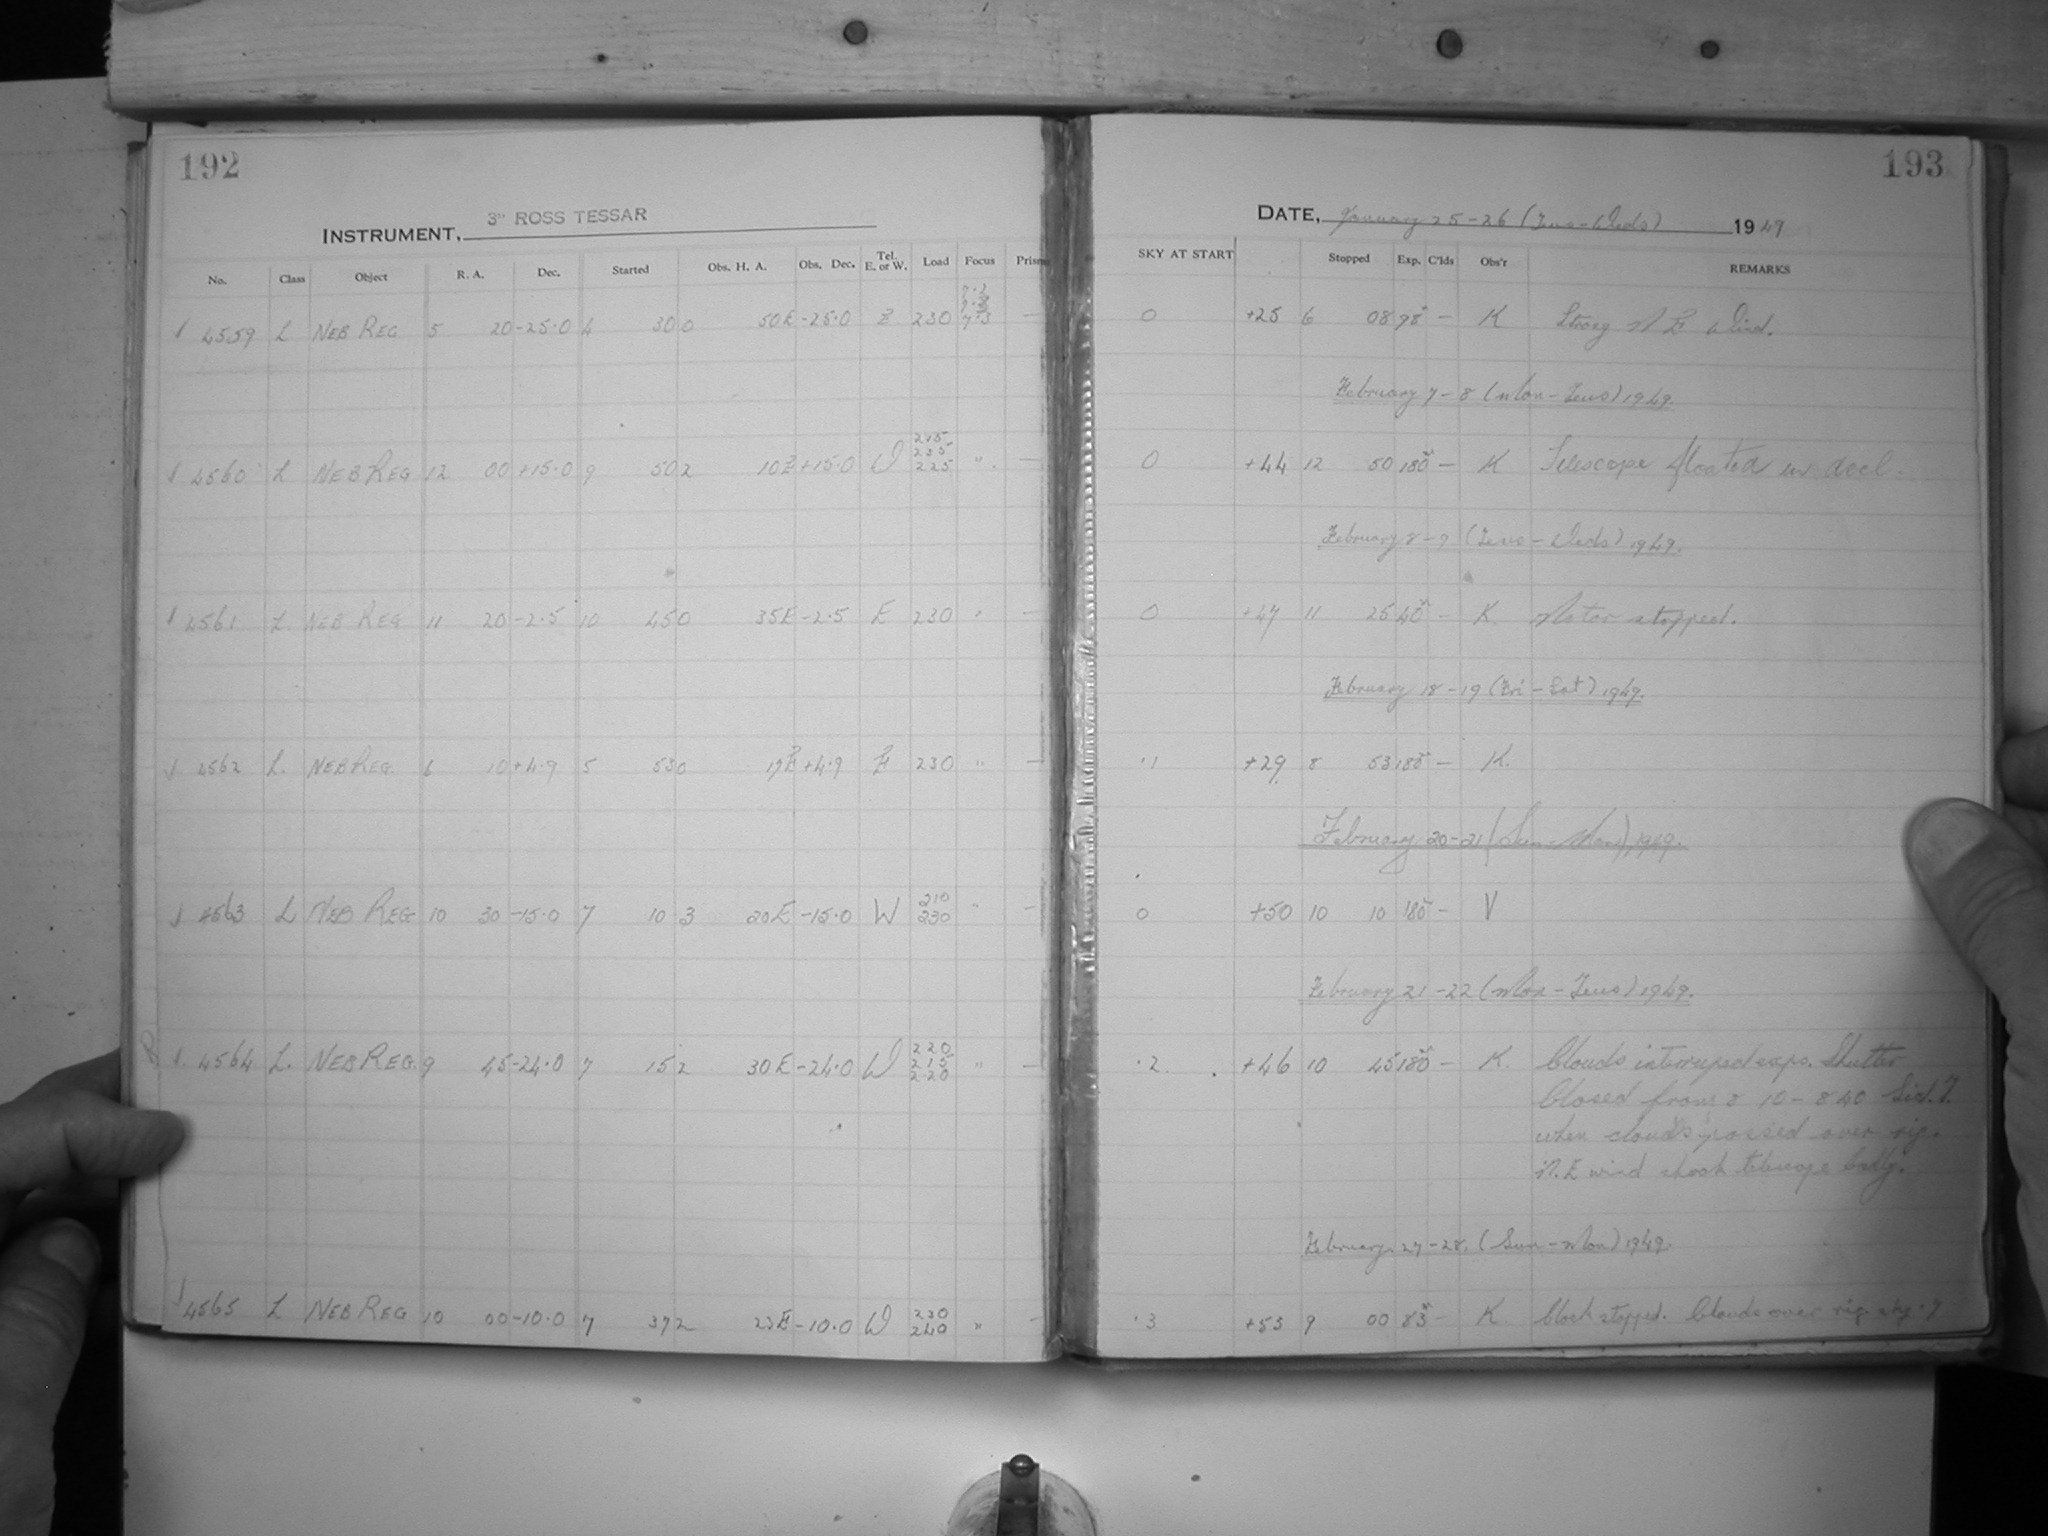 192
INSTRUMENT, 3" ROSS TESSAR
No. Class Object R. A. Dec. Started Obs. H. A. Obs. Dec. Tel. E. or W. Load Focus Prism
4559 L NEB REG 5 20 -25.0 4 30 0 50E -25.0 E 230 7.3 —
4560 L NEB REG 12 00 +15.0 9 50 2 10E +15.0 W 215 235 225 " —
4561 L. NEB REG 11 20 -2.5 10 45 0 35E -2.5 E 230 " —
4562 L. NEB REG. 6 10 +4.9 5 53 0 17E +4.9 E 230 " —
4563 L NEB REG 10 30 -15.0 7 10 3 20E -15.0 W 210 230 " —
4564 L. NEB REG. 9 45 -24.0 7 15 2 30E -24.0 W 220 215 220 " —
4565 L NEB REG 10 00 -10.0 7 37 2 23E -10.0 W 230 240 " —
193
DATE, January 25-26 (Tues-Weds) 1949
SKY AT START Stopped Exp. C'lds Obs'r REMARKS
0 +25 6 08 98m — K Strong N E Wind.
February 7-8 (Mon-Tues) 1949.
0 +44 12 50 180m — K Telescope floated in decl.
February 8-9 (Tues-Weds) 1949.
0 +47 11 25 40m — K. Motor stopped.
February 18-19 (Fri-Sat) 1949.
.1 +29 8 53 180m — K.
February 20-21 (Sun-Mon), 1949.
0 +50 10 10 180m — V
February 21-22 (Mon-Tues) 1949.
.2 +46 10 45 180m — K. Clouds interruped exps. Shutter
Closed from 8 10 - 8 40 Sid. T.
when clouds passed over rig.
N. E wind shook telescope badly.
February 27-28. (Sun-Mon) 1949.
.3 +53 9 00 83m — K. Clock stopped. Clouds over rig. sky .7